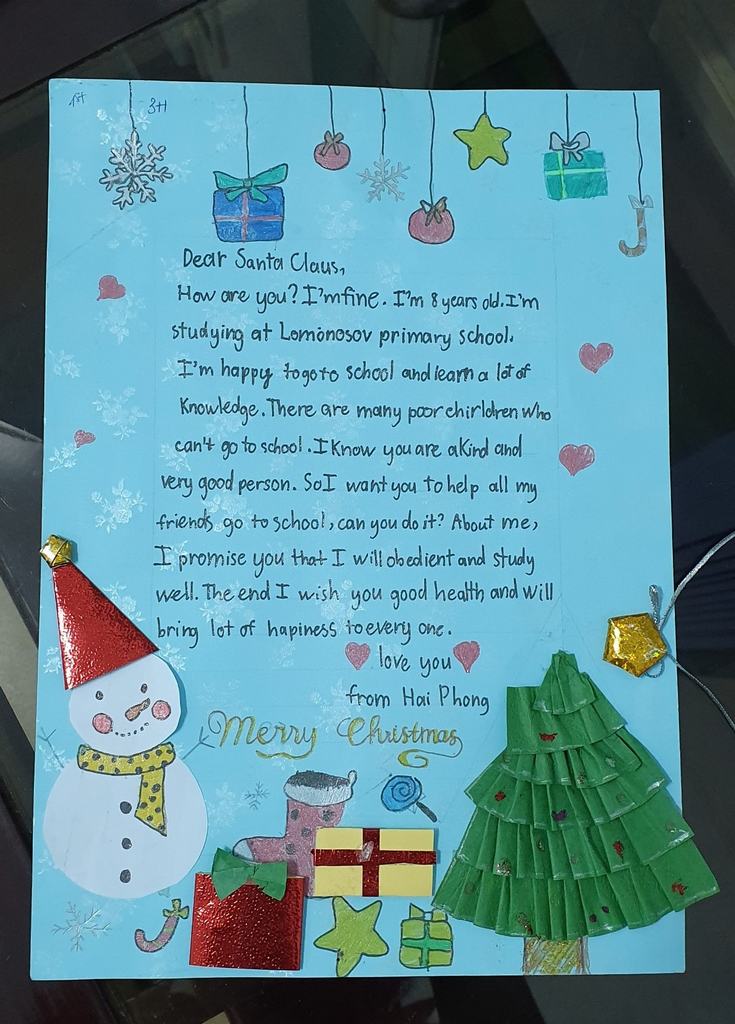 1st 3H
Dear Santa Claus,
How are you? I'm fine. I'm 8 years old. I'm
studying at Lomonosov primary school.
I'm happy to go to school and learn a lot of
Knowledge. There are many poor chirldren who
can't go to school. I Know you are a Kind and
very good person. So I want you to help all my
friends go to school, can you do it? About me,
I promise you that I will obedient and study
well. The end I wish you good health and will
bring lot of hapiness to every one.
love you
from Hai Phong
Merry Christmas